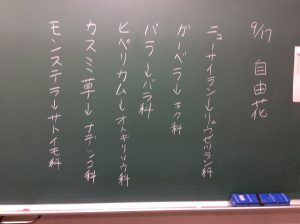 9/17 自由花
ニューサイラン→リュウゼツラン科
ガーベラ→キク科
バラ→バラ科
ヒペリカム→オトギリソウ科
カスミ草→ナデシコ科
モンステラ→サトイモ科